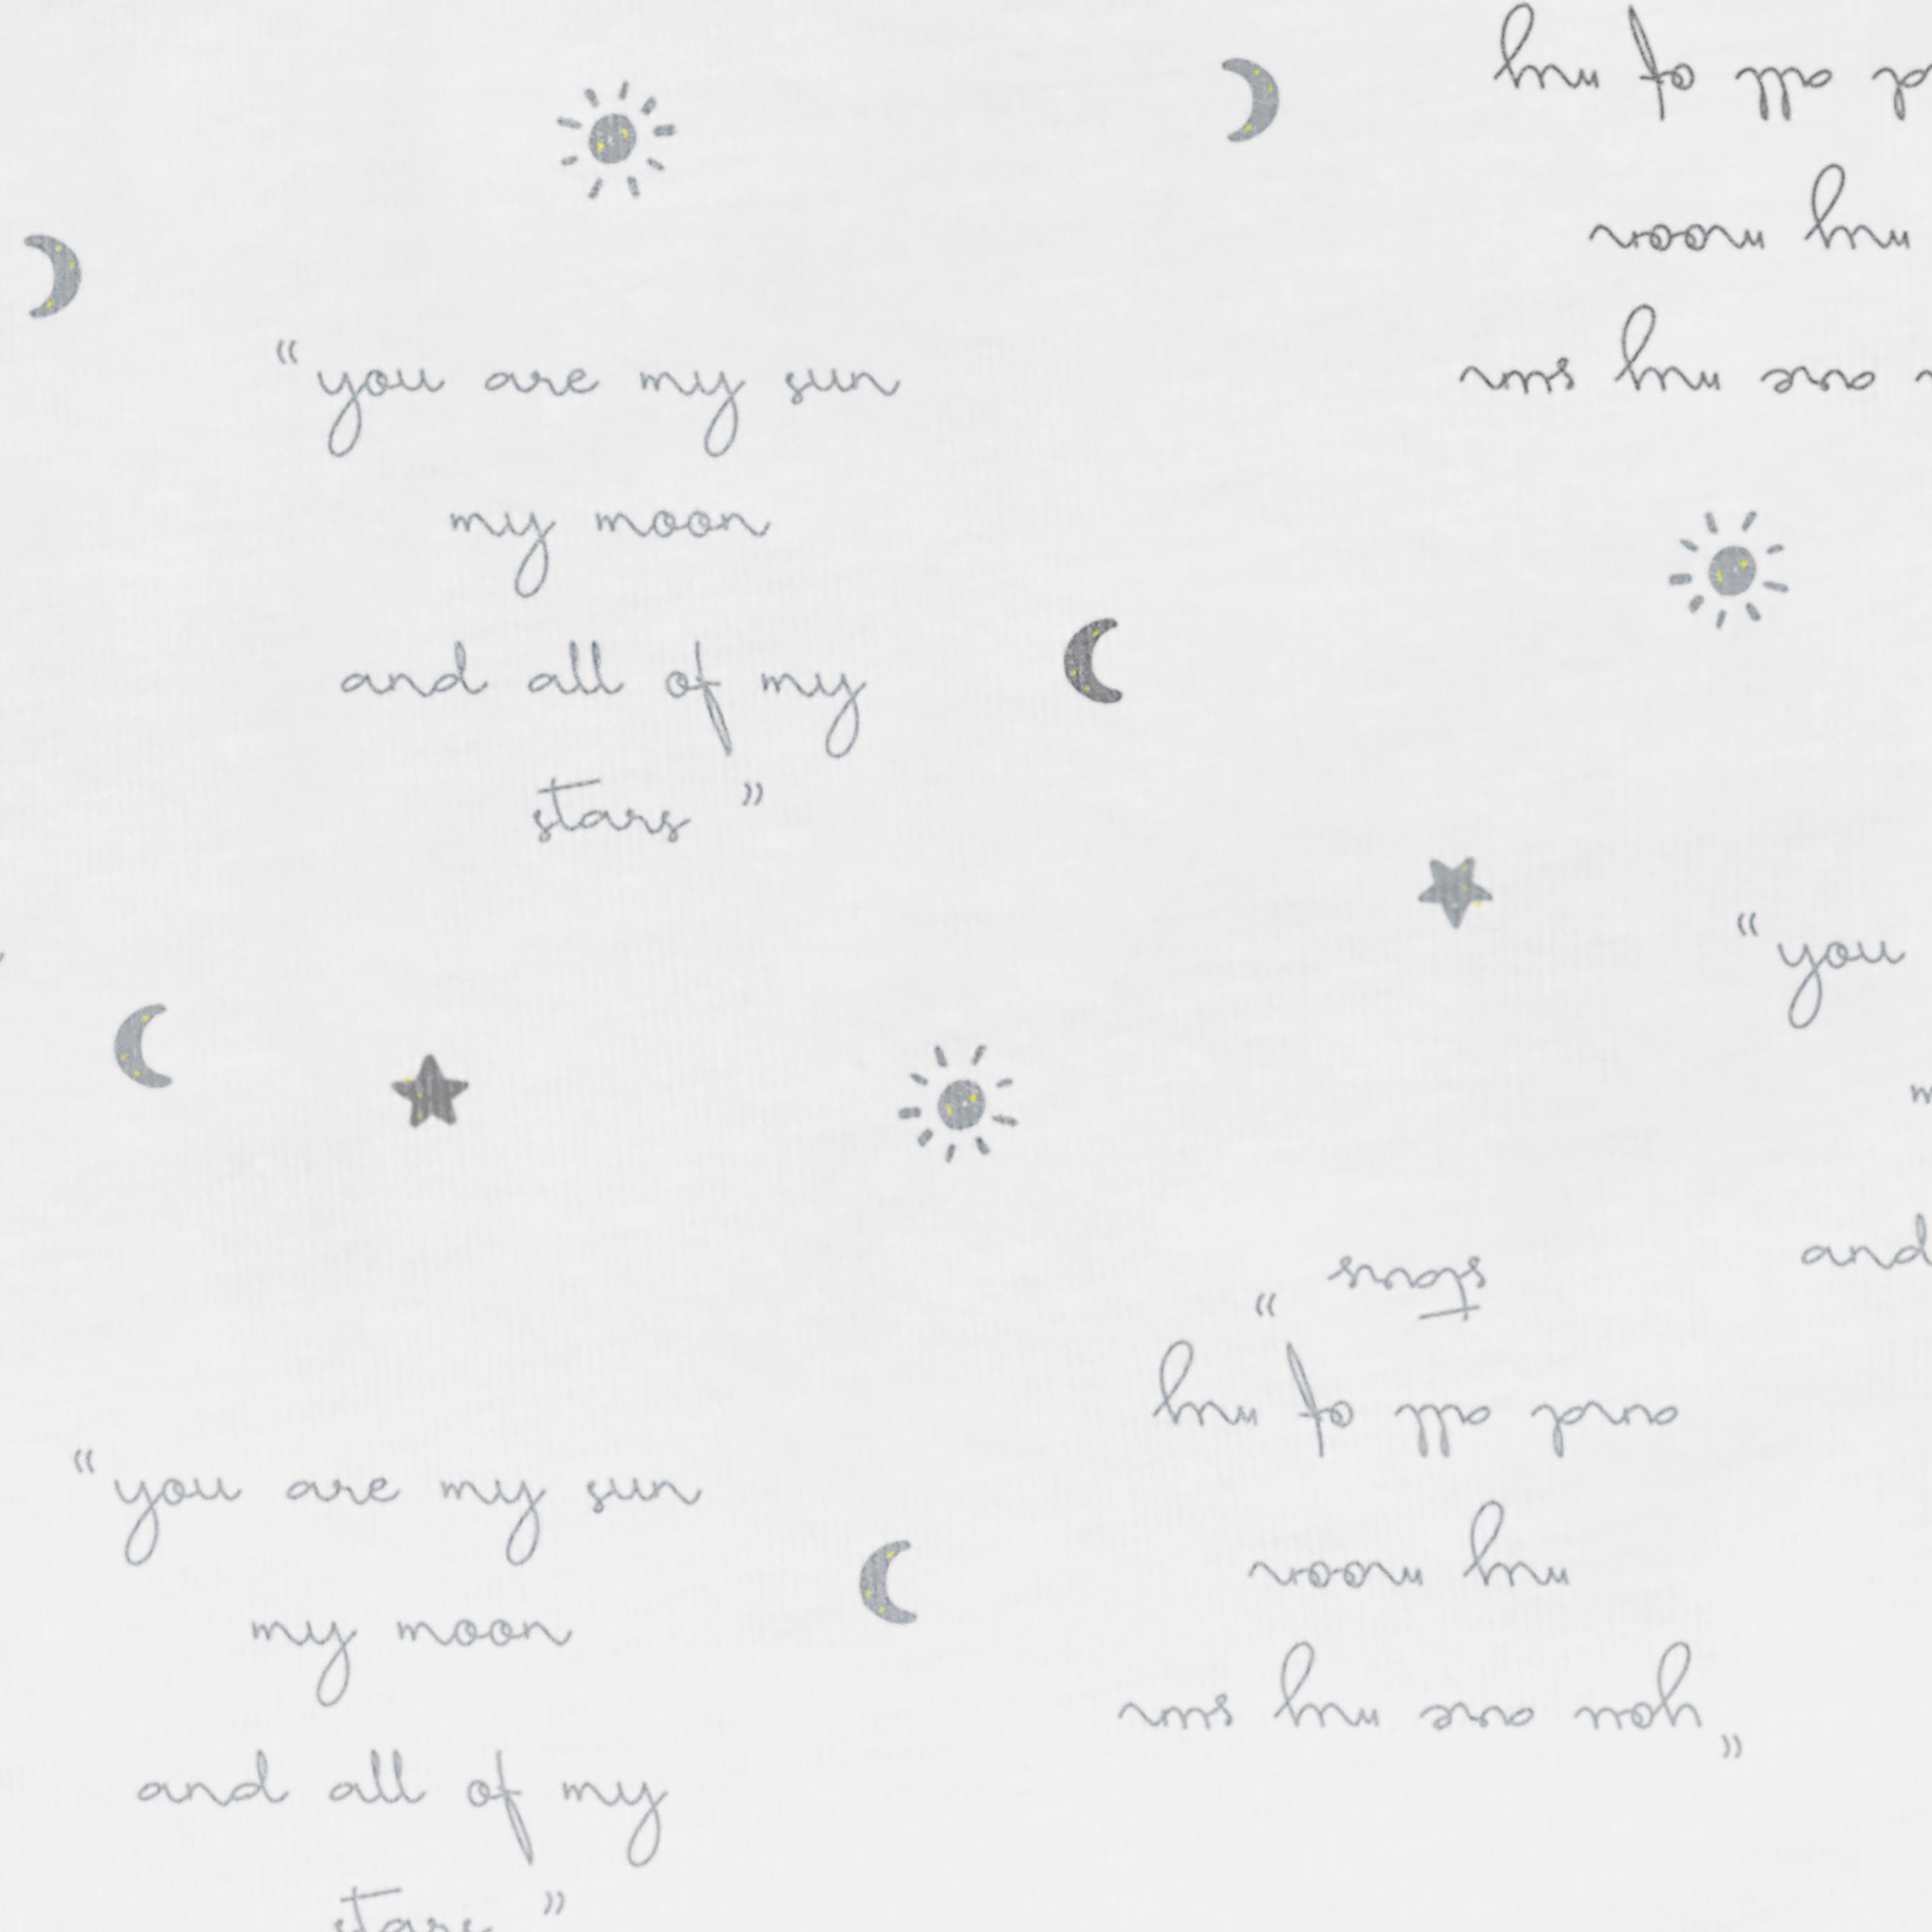 my of all
my moon
my sun are
“you are my sun
my moon
and all of my
stars”
“you
and
“you are my sun
my moon
and all of my
stars”
“you are my sun
my moon
and all of my
stars”